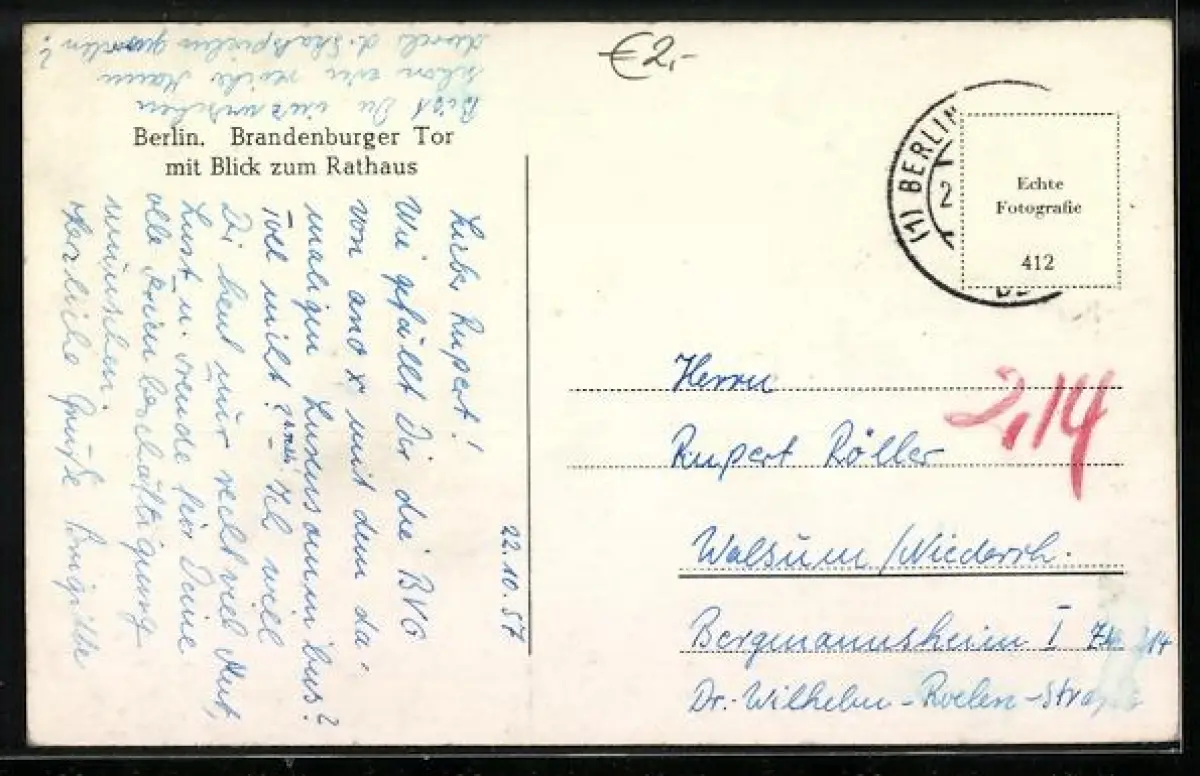 €2,-
Berlin. Brandenburger Tor
mit Blick zum Rathaus
(1) BERLIN
2
Echte
Fotografie
412
22.10.57
Lieber Rupert!
Wie gefällt Dir die BVG
von and mit dem da-
maligen bus?
Toll nicht? Ich will
Dir heut nur recht viel Mut,
Lust u. Freude für Deine
olle Beschäftigung
wünschen.
Herzliche Grüße Brigitte
Bist Du inzwischen
schon ein reicher Mann
durch d. Skatspielen geworden?
Herrn
Rupert Röller
2,14
Walsum/Niederrh.
Bergmannsheim I 214
Dr.-Wilhelm-Roelen-Straße